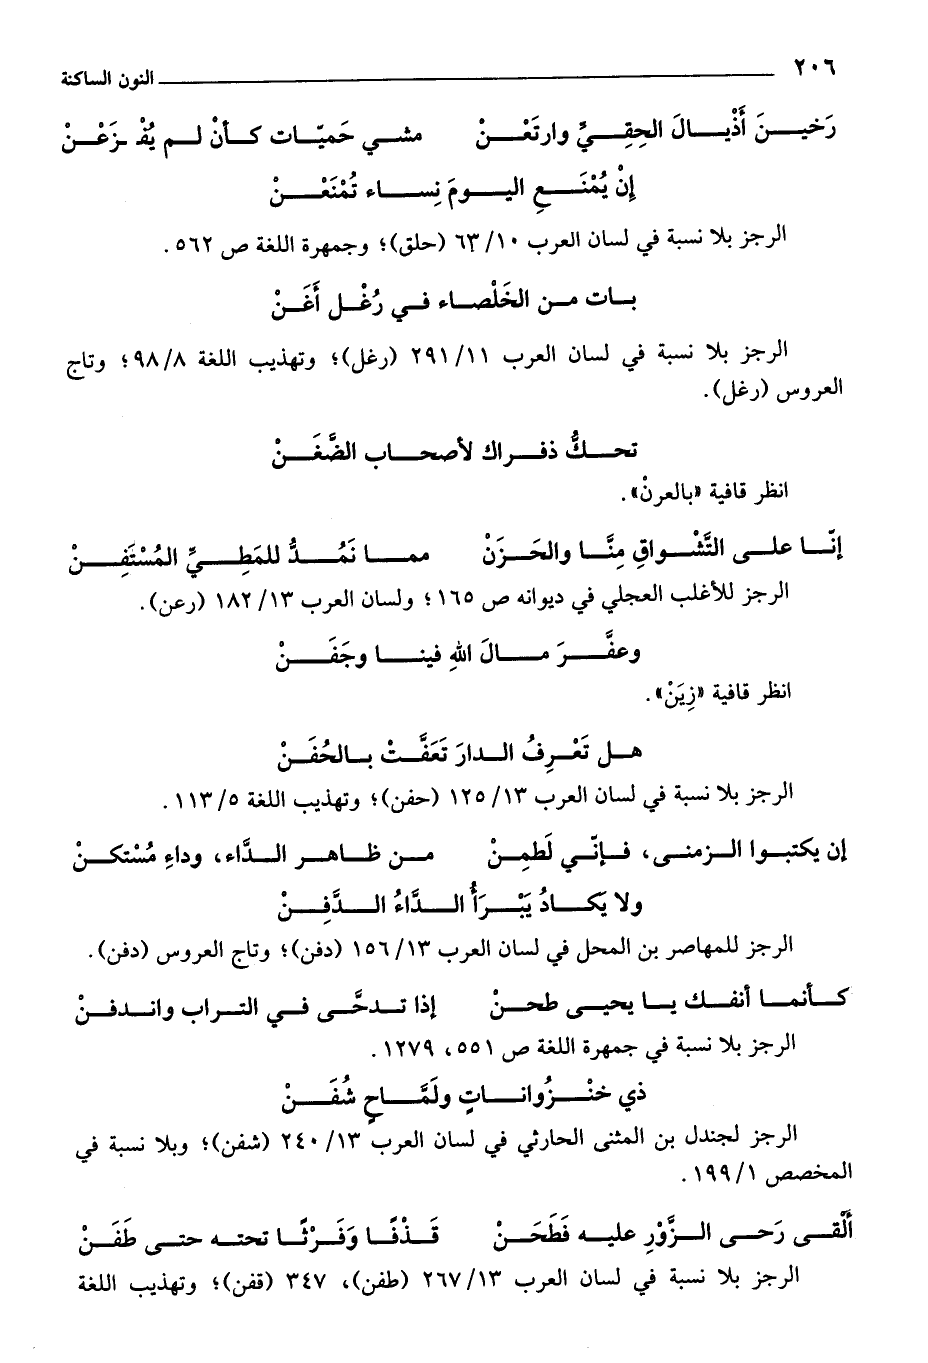 ٢٠٦ النون الساكنة
رَخيـنَ أَذْيـالَ الحِقِـيِّ وارتَعْـنْ مشـي حَميّـات كـأنْ لـم يُفْـزَعْـنْ
إنْ يُمْنَـعِ اليـومَ نِسـاء تُمْنَعْـنْ
الرجز بلا نسبة في لسان العرب ١٠/ ٦٣ (حلق)؛ وجمهرة اللغة ص ٥٦٢ .
بـات مـن الخَلْصـاء فـي رُغْـل أَغَـنْ
الرجز بلا نسبة في لسان العرب ١١/ ٢٩١ (رغل)؛ وتهذيب اللغة ٨/ ٩٨؛ وتاج
العروس (رغل).
تحـكُّ ذفـراك لأصحـاب الضَّغَـنْ
انظر قافية «بالعرنْ».
إنّـا علـى التَّشْـواقِ مِنَّـا والحَـزَنْ ممـا نَمُـدُّ للمَطِـيِّ المُسْتَفِـنْ
الرجز للأغلب العجلي في ديوانه ص ١٦٥؛ ولسان العرب ١٣/ ١٨٢ (رعن).
وعفَّـرَ مـالَ اللهِ فينـا وجَفَـنْ
انظر قافية «زِيَنْ».
هـل تَعْـرِفُ الـدارَ تَعَفَّـتْ بـالحُفَـنْ
الرجز بلا نسبة في لسان العرب ١٣/ ١٢٥ (حفن)؛ وتهذيب اللغة ٥/ ١١٣ .
إن يكتبـوا الـزمنـى، فـإنّـي لَطَمِـنْ مـن ظـاهـر الـدَّاء، وداءِ مُسْتكـنْ
ولا يَكـادُ يَبْـرَأُ الـدَّاءُ الـدَّفِـنْ
الرجز للمهاصر بن المحل في لسان العرب ١٣/ ١٥٦ (دفن)؛ وتاج العروس (دفن).
كـأنمـا أنفـك يـا يحيـى طحـنْ إذا تـدحَّـى فـي التـراب وانـدفـنْ
الرجز بلا نسبة في جمهرة اللغة ص ٥٥١، ١٢٧٩ .
ذي خنْـزُوانـاتٍ ولَمَّـاحٍ شُفَـنْ
الرجز لجندل بن المثنى الحارثي في لسان العرب ١٣/ ٢٤٠ (شفن)؛ وبلا نسبة في
المخصص ١/ ١٩٩ .
أَلْقـى رَحـى الـزَّوْرِ عليـه فَطَحَـنْ قَـذْفًـا وَفَـرْثًـا تحتـه حتـى طَفَـنْ
الرجز بلا نسبة في لسان العرب ١٣/ ٢٦٧ (طفن)، ٣٤٧ (قفن)؛ وتهذيب اللغة